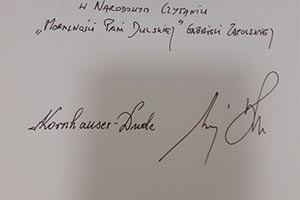 W NARODOWYM CZYTANIU
„MORALNOŚCI PANI DULSKIEJ" GABRIELI ZAPOLSKIEJ
Kornhauser-Duda